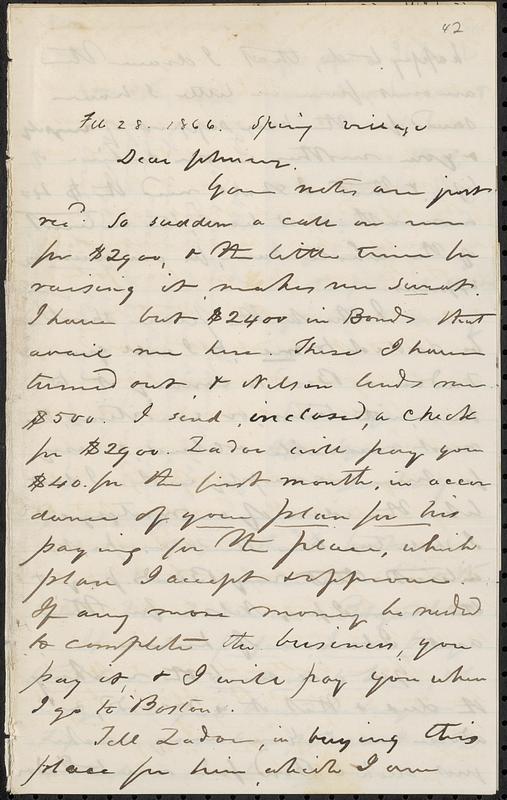 42
Feb 28. 1866. Spring village
Dear Johnny.
Your notes are just
rec'd. So sudden a call on me
for $2900, & the little time for
raising it, makes me sweat.
I have but $2400 in Bonds that
avail me here. These I have
turned out, & Nelson lends me
$500. I send, inclosed, a check
for $2900. Zadoc will pay you
$40. for the first month, in accor
dance of your plan for his
paying for the place, which
plan I accept & approve
If any more money be needed
to complete the business, you
pay it, & I will pay you when
I go to Boston.
Tell Zadoc, in buying this
place for him, which I am